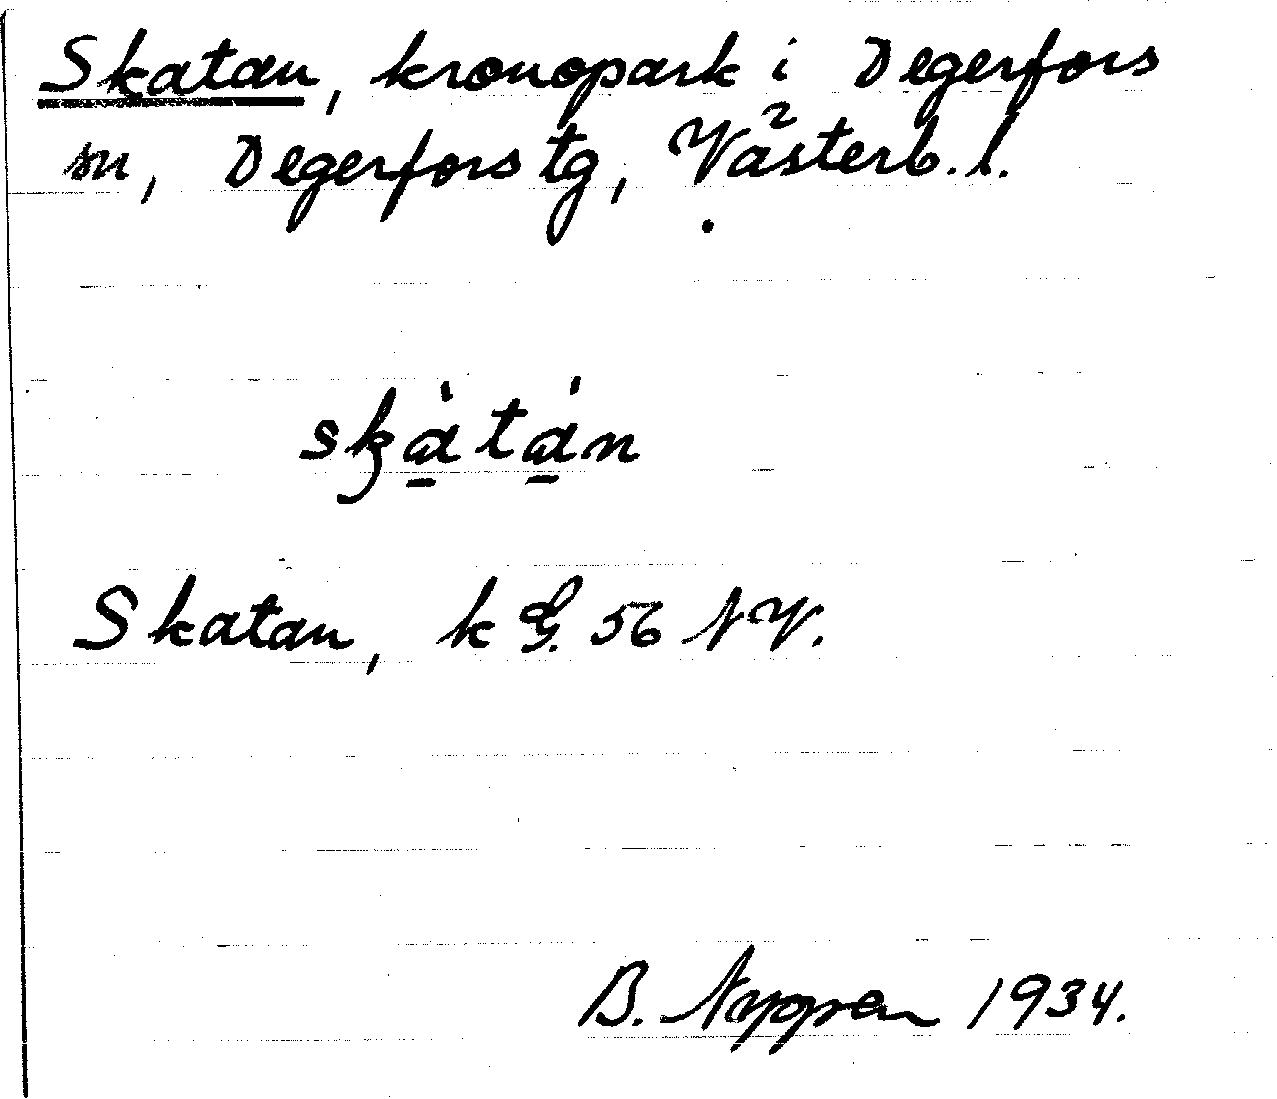 Skatan, kronopark i Degerfors
sn, Degerfors tg, Västerb. l.
skàtán
Skatan, k G. 56 NV.
B. Nygren 1934.